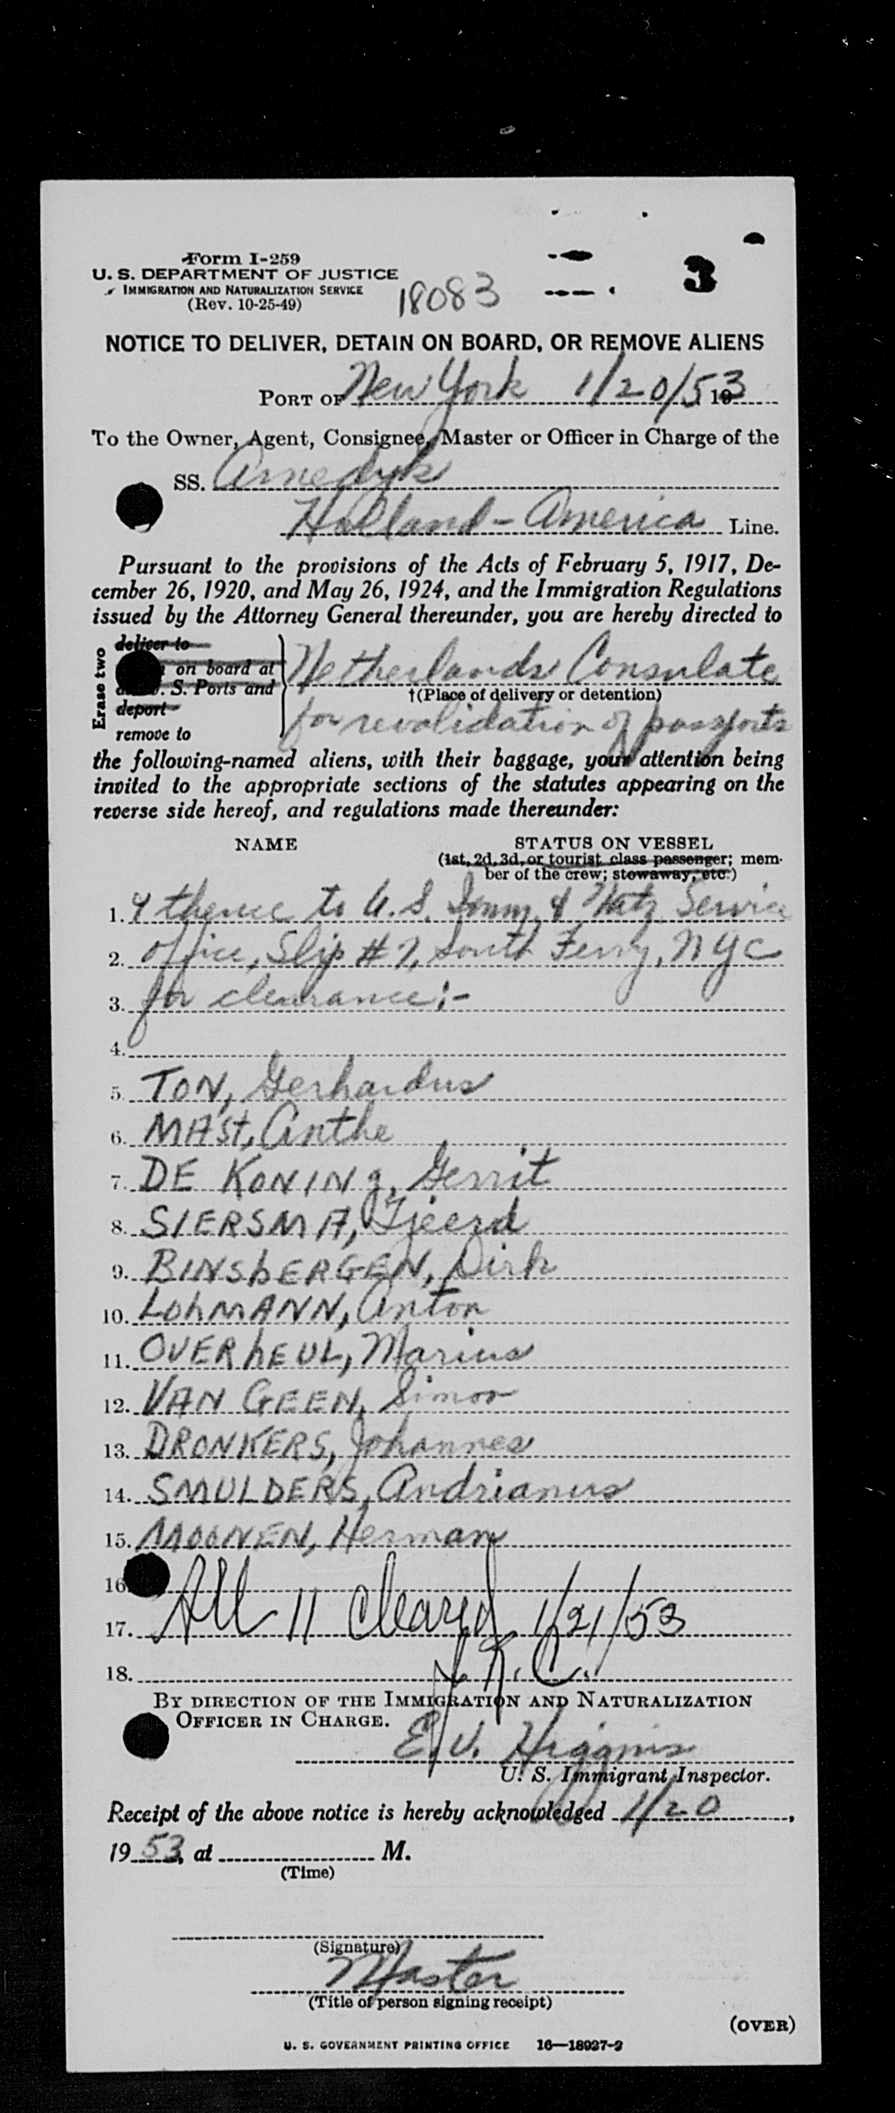 Form I-259
U. S. DEPARTMENT OF JUSTICE
IMMIGRATION AND NATURALIZATION SERVICE
(Rev. 10-25-49)
18083
3
NOTICE TO DELIVER, DETAIN ON BOARD, OR REMOVE ALIENS
PORT OF New York 1/20/53
To the Owner, Agent, Consignee, Master or Officer in Charge of the
SS. Arnedyk
Holland-America Line.
Pursuant to the provisions of the Acts of February 5, 1917, De-
cember 26, 1920, and May 26, 1924, and the Immigration Regulations
issued by the Attorney General thereunder, you are hereby directed to
Erase two
deliver to
on board at
S. Ports and
deport
remove to
Netherlands Consulate
†(Place of delivery or detention)
for revalidation of passports
the following-named aliens, with their baggage, your attention being
invited to the appropriate sections of the statutes appearing on the
reverse side hereof, and regulations made thereunder:
NAME STATUS ON VESSEL
(1st, 2d, 3d, or tourist class passenger; mem-
ber of the crew; stowaway; etc.)
1. & thence to U.S. Immy & Natz Service
2. office, Slip #7, South Ferry, NYC
3. for clearance:-
4.
5. TON, Gerhardus
6. MASt, Anthe
7. DE KONINg, Gerrit
8. SIERSMA, Tjeerd
9. BINSbERGEN, Dirk
10. LOhMANN, Anton
11. OVERhEUL, Marius
12. VAN GEEN, Simon
13. DRONKERS, Johannes
14. SMULDERS, Andrianus
15. MOONEN, Herman
16
17. All 11 Cleared 1/21/53
18. J.K.C.
BY DIRECTION OF THE IMMIGRATION AND NATURALIZATION
OFFICER IN CHARGE.
E.V. Higgins
U. S. Immigrant Inspector.
Receipt of the above notice is hereby acknowledged 1/20,
1953, at M.
(Time)
(Signature)
Master
(Title of person signing receipt)
(OVER)
U. S. GOVERNMENT PRINTING OFFICE 16—18927-2